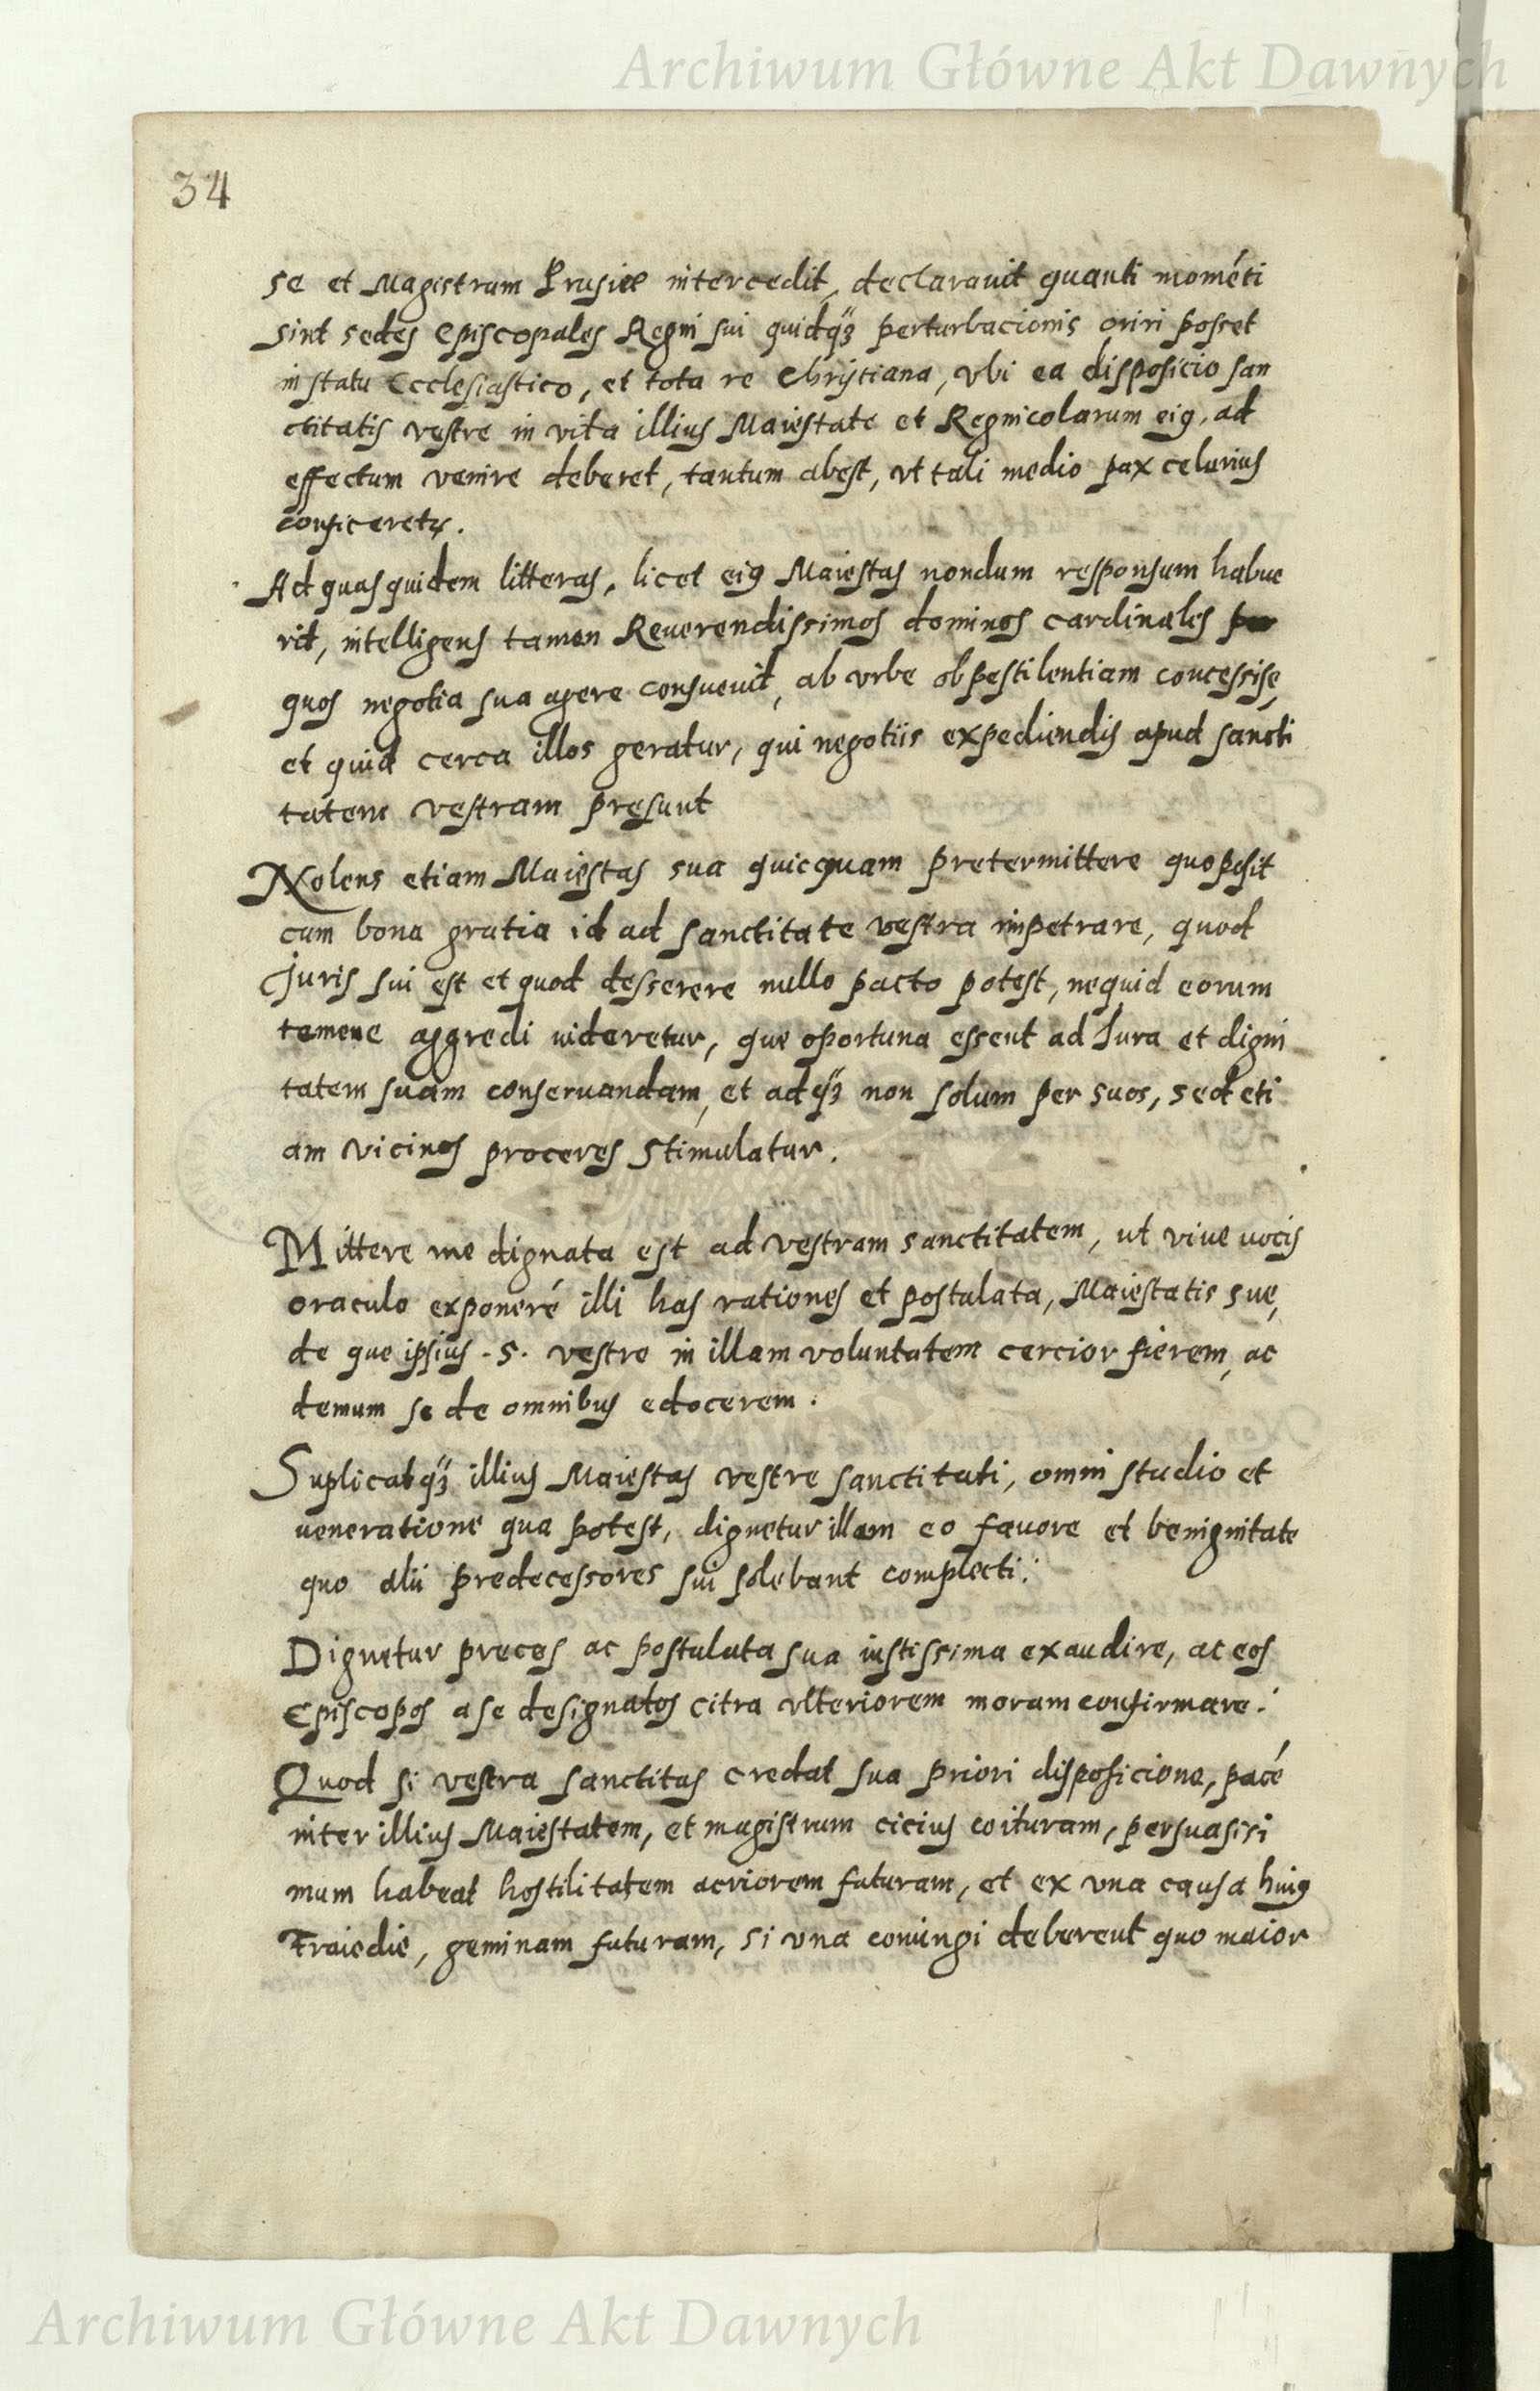 Archiwum Główne Akt Dawnych
34
se et Magistrum Prusiae intercedit, declaravit quanti mométi
sint sedes Episcopales Regni sui quidq3 perturbacionis oriri posset
in statu Ecclesiastico, et tota re Christiana, vbi ea disposicio san
ctitatis vestre in vita illius Maiestate et Regnicolarum eig, ad
effectum venire deberet, tantum abest, vt tali medio pax celerius
conficeretr.
Ad quas quidem litteras, licet eig Maiestas nondum responsum habue
rit, intelligens tamen Reuerendissimos dominos cardinales per
quos negotia sua agere consueuit, ab vrbe ob pestilentiam concessisę,
et quid cerca illos geratur, qui negotiis expediendis apud sancti
tatem vestram presunt
Nolens etiam Maiestas sua quicquam pretermittere quo posit
cum bona gratia id ad sanctitate vestra impetrare, quod
Juris sui est et quod desserere nullo pacto potest, nequid eorum
temere aggredi uideretur, que oportuna essent ad Jura et digni
tatem suam conseruandam, et adq3 non solum per suos, sed eti
am vicinos proceres stimulatur.
Mittere me dignata est ad vestram sanctitatem, ut viue uocis
oraculo exponeré illi has rationes et postulata, Maiestatis suę,
de que ipsius .S. vestre in illam voluntatem cercior fierem, ac
demum se de omnibus edocerem.
Suplicatq3 illius Maiestas vestre sanctitati, omni studio et
ueneratione qua potest, dignetur illam eo fauore et benignitate
quo alii predecessores sui solebant complecti.
Dignetur preces ac postulata sua iustissima exaudire, ac eos
Episcopos a se designatos citra vlteriorem moram confirmare.
Quod si vestra sanctitas credat sua priori disposicione, pacé
inter illius Maiestatem, et magistrum cicius coituram, persuasisi
mum habeat hostilitatem acriorem futuram, et ex vna causa huig
Traiedie, geminam futuram, si vna coniungi deberent quo maior
Archiwum Główne Akt Dawnych